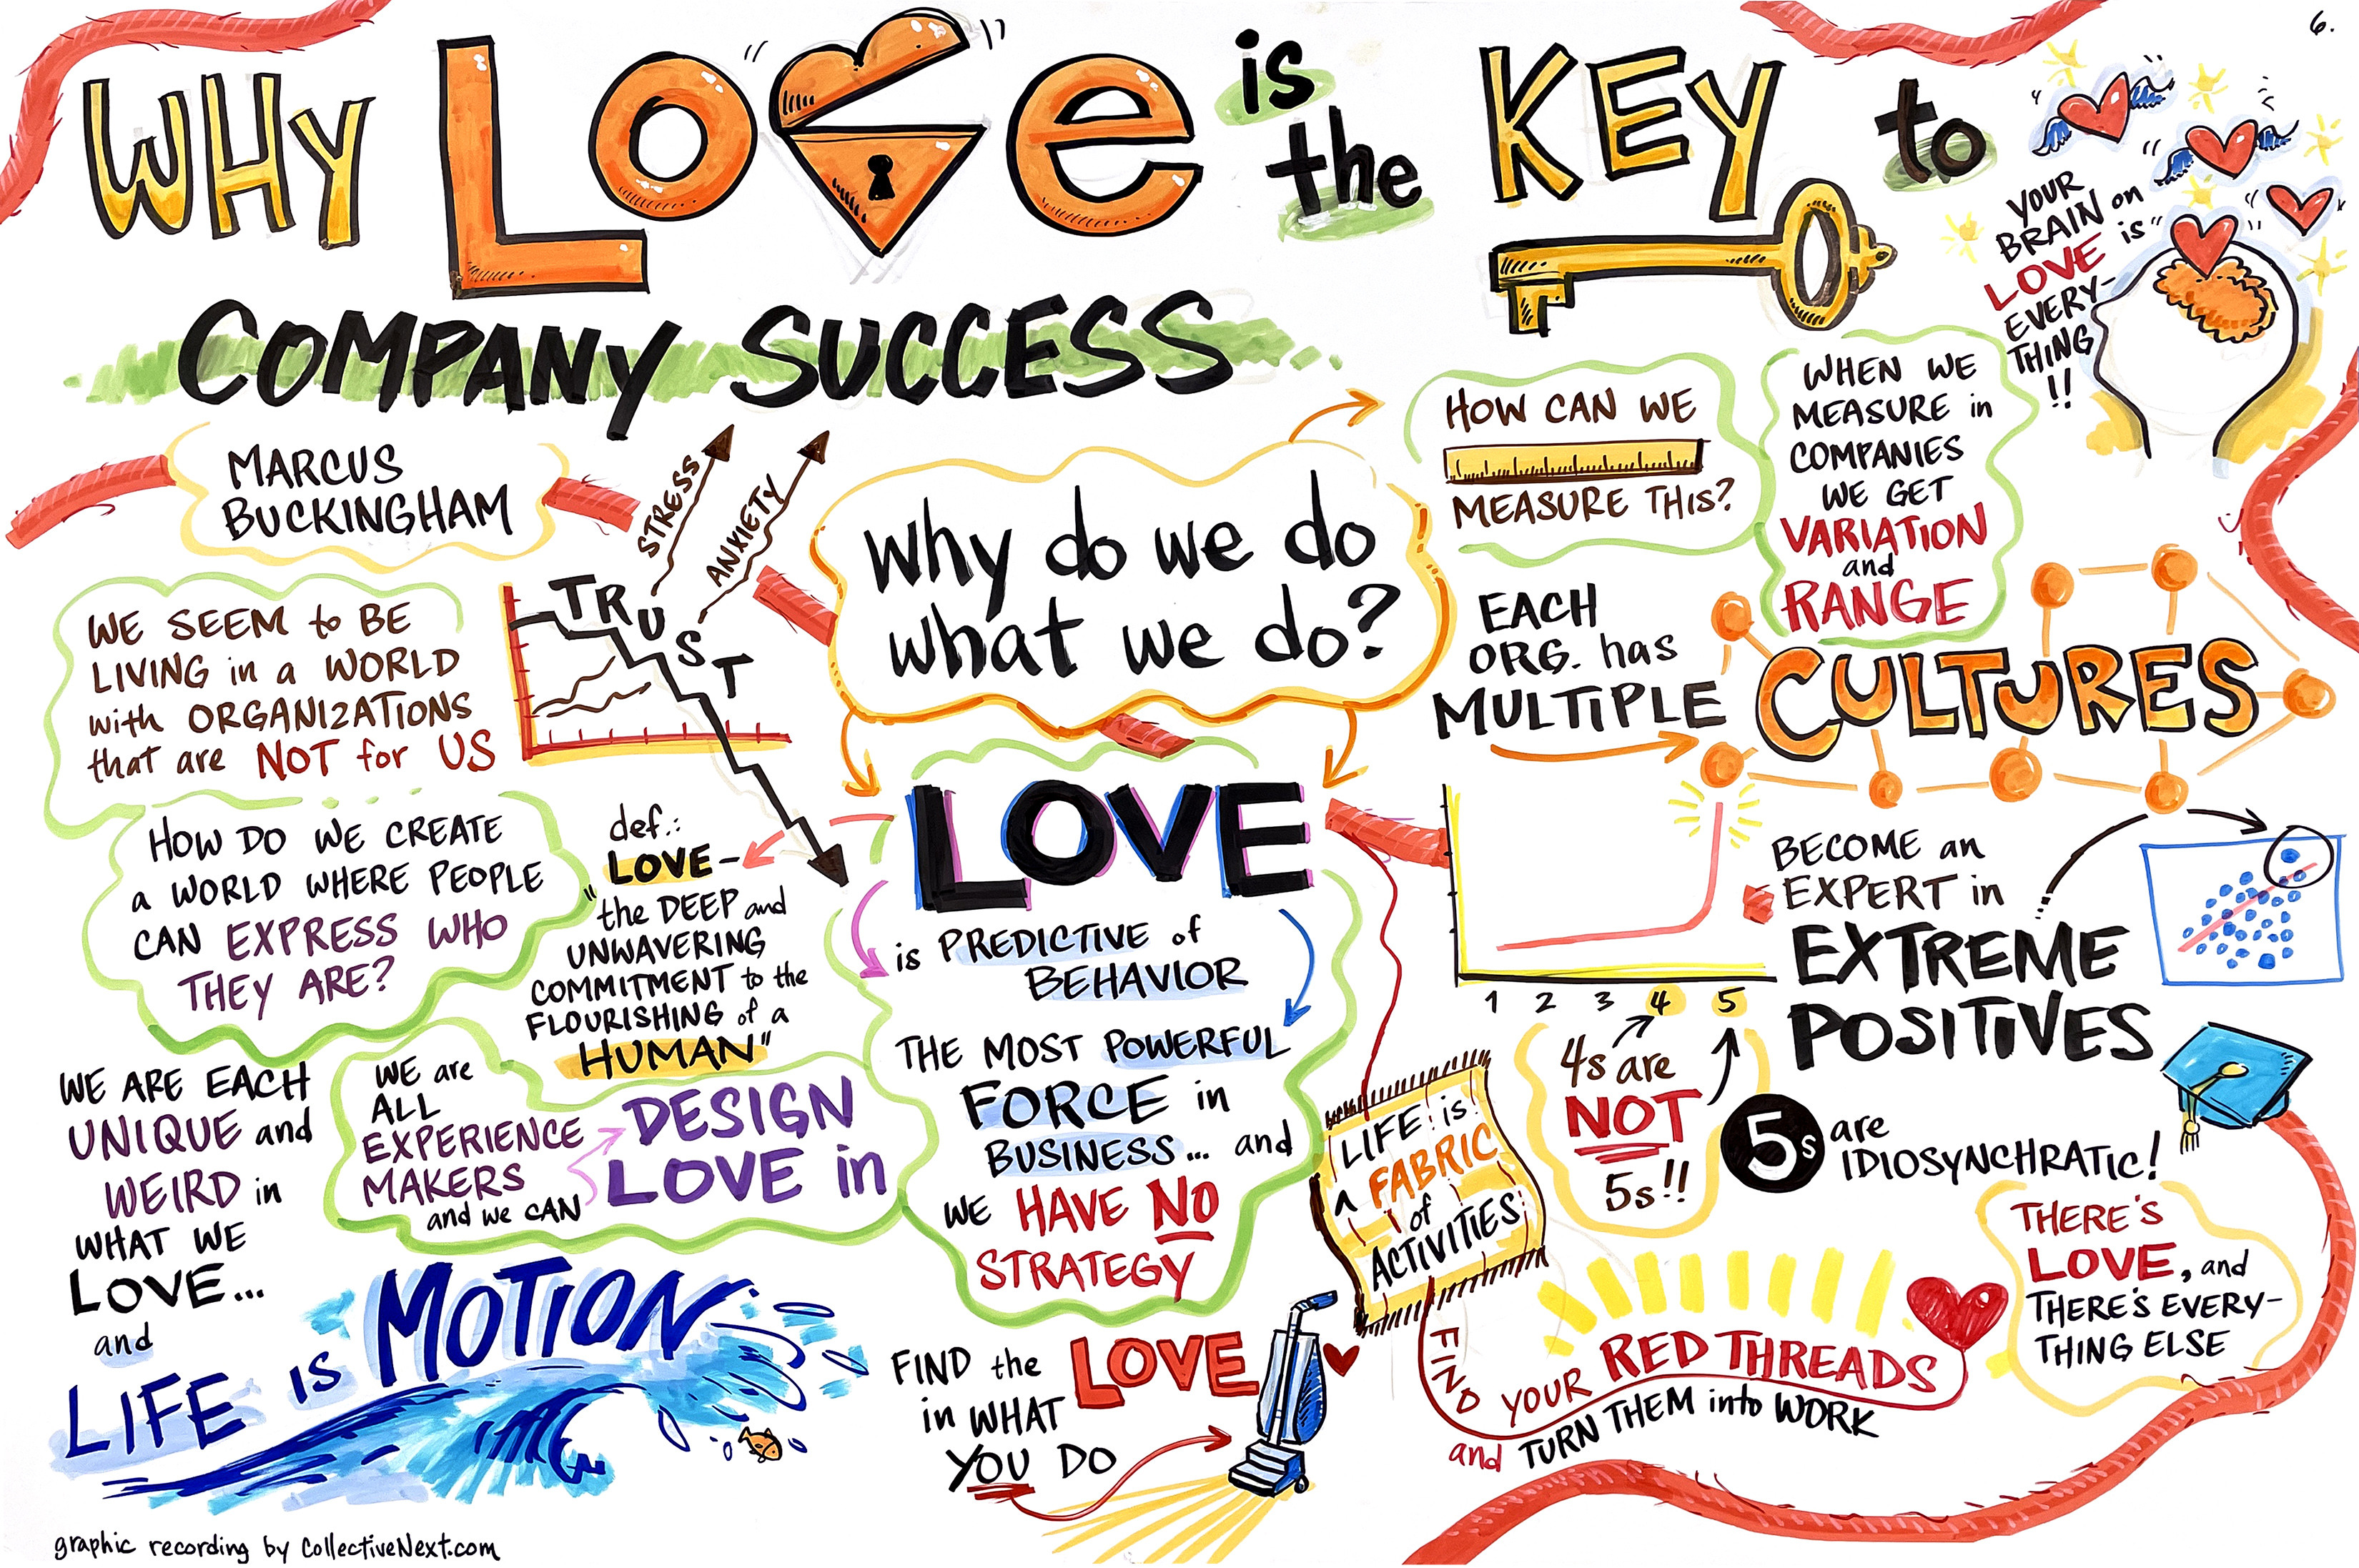 6.
WHY LOVE is the KEY to
COMPANY SUCCESS
YOUR
BRAIN on
LOVE is
EVERY-
THING
!!
MARCUS
BUCKINGHAM
WE SEEM to BE
LIVING in a WORLD
with ORGANIZATIONS
that are NOT for US
STRESS
ANXIETY
TRUST
HOW DO WE CREATE
a WORLD WHERE PEOPLE
CAN EXPRESS WHO
THEY ARE?
def.:
LOVE-
"the DEEP and
UNWAVERING
COMMITMENT to the
FLOURISHING of a
HUMAN"
WE ARE EACH
UNIQUE and
WEIRD in
WHAT WE
LOVE...
and
LIFE is MOTION
WE are
ALL
EXPERIENCE
MAKERS
and we CAN
DESIGN
LOVE in
Why do we do
what we do?
LOVE
is PREDICTIVE of
BEHAVIOR
THE MOST POWERFUL
FORCE in
BUSINESS... and
WE HAVE NO
STRATEGY
FIND the LOVE
in WHAT
YOU DO
HOW CAN WE
MEASURE THIS?
WHEN WE
MEASURE in
COMPANIES
WE GET
VARIATION
and
RANGE
EACH
ORG. has
MULTIPLE
CULTURES
1 2 3 4 5
4s are
NOT
5s!!
5s are
IDIOSYNCHRATIC!
BECOME an
EXPERT in
EXTREME
POSITIVES
LIFE is
A FABRIC
of
ACTIVITIES
FIND YOUR RED THREADS
and TURN THEM into WORK
THERE'S
LOVE, and
THERE'S EVERY-
THING ELSE
graphic recording by CollectiveNext.com